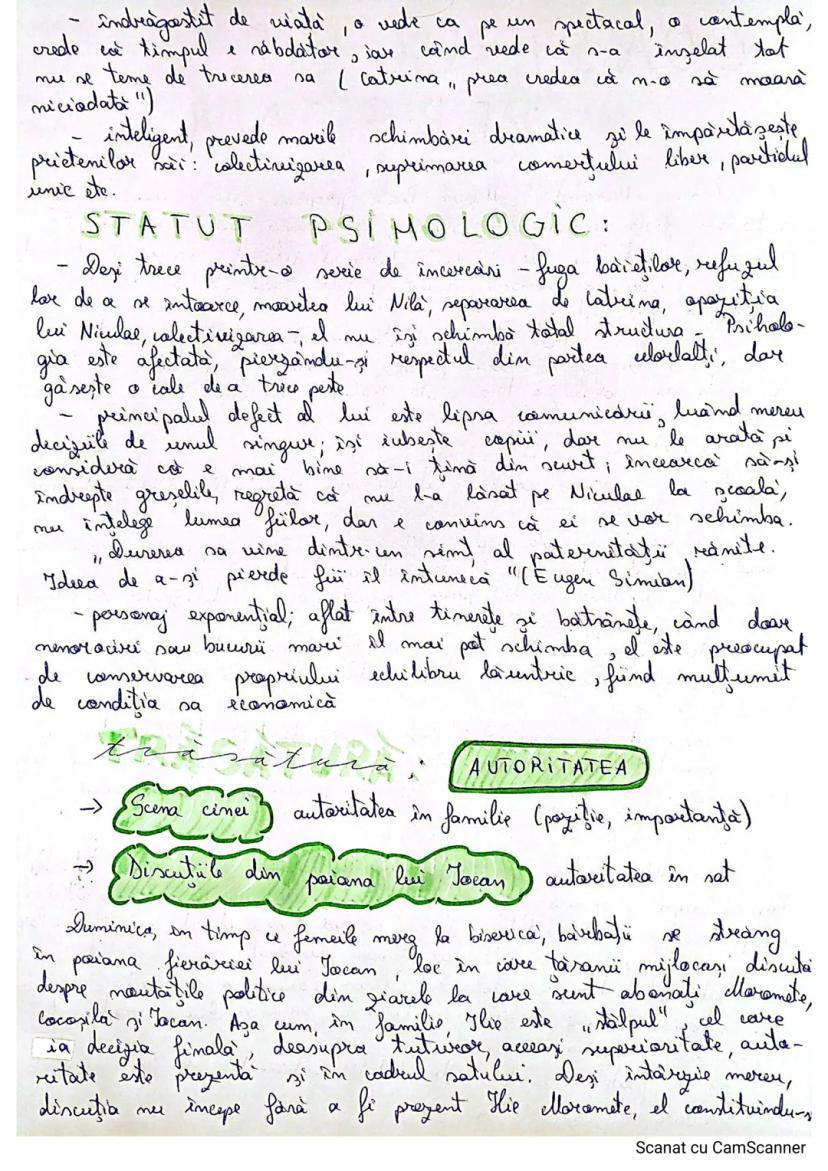 - îndrăgostit de viață, o vede ca pe un spectacol, o contemplă,
crede că timpul e răbdător, iar când vede că s-a înșelat tot
nu se teme de trecerea sa ( Catrina „ prea credea că n-o să moară
niciodată")
- inteligent, prevede marile schimbări dramatice și le împărtășește
prietenilor săi: colectivizarea, suprimarea comerțului liber, partidul
unic etc.
STATUT PSIHOLOGIC:
- Deși trece printr-o serie de încercări - fuga băieților, refuzul
lor de a se întoarce, moartea lui Nilă, separarea de Catrina, opoziția
lui Niculae, colectivizarea -, el nu își schimbă total structura - Psiholo-
gia este afectată, pierzându-și respectul din partea celorlalți, dar
găsește o cale de a trece peste
- principalul defect al lui este lipsa comunicării, luând mereu
deciziile de unul singur; își iubește copiii, dar nu le arată și
consideră că e mai bine să-i țină din scurt; încearcă să-și
îndrepte greșelile, regretă că nu l-a lăsat pe Niculae la școală,
nu înțelege lumea fiilor, dar e convins că ei se vor schimba.
„Durerea sa vine dintr-un simț al paternității rănite.
Ideea de a-și pierde fiii îl întunecă "(Eugen Simion)
- personaj exponențial; aflat între tinerețe și bătrânețe, când doar
nenorociri sau bucurii mari îl mai pot schimba, el este preocupat
de conservarea propriului echilibru lăuntric, fiind mulțumit
de condiția sa economică
trăsătură: AUTORITATEA
→ Scena cinei autoritatea în familie (poziție, importanță)
→ Discuțiile din poiana lui Iocan autoritatea în sat
Duminica, în timp ce femeile merg la biserică, bărbații se strâng
în poiana fierăriei lui Iocan, loc în care țăranii mijlocași discută
despre noutățile politice din ziarele la care sunt abonați Moromete,
Cocoșilă și Iocan. Așa cum, în familie, Ilie este „stâlpul", cel care
ia decizia finală, deasupra tuturor, aceeași superioritate, auto-
ritate este prezentă și în cadrul satului. Deși întârzie mereu,
discuția nu începe fără a fi prezent Ilie Moromete, el constituindu-s
Scanat cu CamScanner